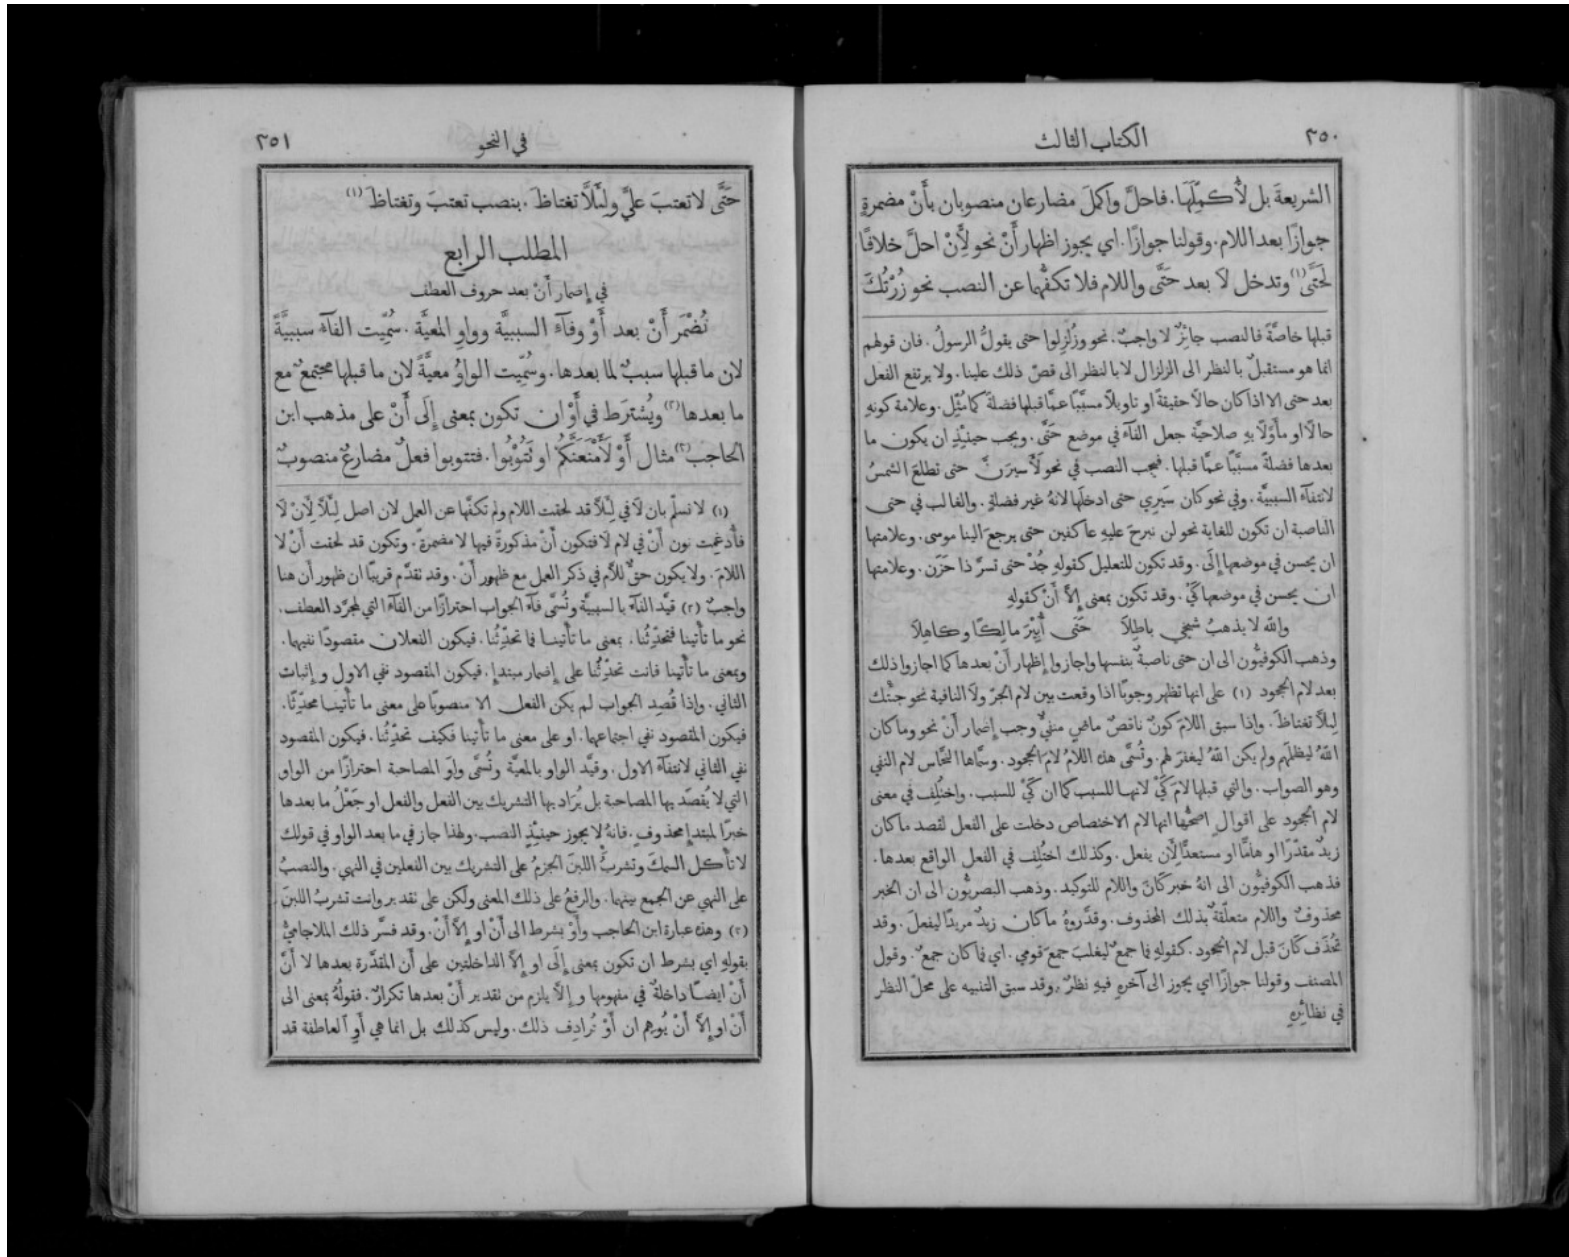 ٢٥٠
الكتاب الثالث
الشريعةَ بل لأُكمِّلَهَا. فاحلَّ واكملَ مضارعانِ منصوبان بأَنْ مضمرةٍ
جوازًا بعد اللام. وقولنا جوازًا. اي يجوز اظهار أَنْ نحو لِأَنْ احلَّ خلافًا
لحَتَّى (١) وتدخل لا بعد حَتَّى واللام فلا تكفُّهما عن النصب نحو زُرْتُكَ
قبلها خاصَّةً فالنصب جائزٌ لا واجبٌ. نحو وزُلزِلوا حتى يقولُ الرسولُ. فان قولهم
انما هو مستقبلٌ بالنظر الى الزلزال لا بالنظر الى قصّ ذلك علينا. ولا يرتفع الفعل
بعد حتى الا اذا كان حالاً حقيقةً او تاويلاً مسبَّبًا عمَّا قبلها فضلةً كما مُثِّل. وعلامة كونهِ
حالاً او مأوَّلاً بهِ صلاحيَّة جعل الفآءِ في موضع حَتَّى. ويجب حينئِذٍ ان يكون ما
بعدها فضلةً مسبَّبًا عمَّا قبلها. فيجب النصب في نحو لَأَسيرَنَّ حتى تطلعَ الشمسُ
لانتفآءِ السببيَّة. وفي نحو كان سَيرِي حتى ادخلَها لانهُ غير فضلةٍ. والغالب في حتى
الناصبة ان تكون للغاية نحو لن نبرحَ عليهِ عاكفين حتى يرجعَ الينا موسى. وعلامتها
ان يحسن في موضعها إِلَى. وقد تكون للتعليل كقولهِ جُدْ حتى تسرَّ ذا حَزَن. وعلامتها
ان يحسن في موضعها كَيْ. وقد تكون بمعنى إِلاَّ أَنْ كقولهِ
والله لا يذهبُ شيخي باطِلاَ حَتَّى أُبِيرَ مالِكًا وكاهِلاَ
وذهب الكوفيُّون الى ان حتى ناصبةٌ بنفسها واجازوا إِظهار أَنْ بعدها كما اجازوا ذلك
بعد لام الجحود (١) على انها تظهر وجوبًا اذا وقعت بين لام الجرّ ولَا النافية نحو جئتُك
لِئلاَّ تغتاظَ. واذا سبق اللامَ كونٌ ناقصٌ ماضٍ منفيٌّ وجب إِضمار أَنْ نحو وما كان
اللهُ ليظلَمَهم ولم يكن اللهُ ليغفرَ لهم. وتُسمَّى هذه اللامُ لامَ الجحود. وسمَّاها النحَّاس لام النفي
وهو الصواب. والتي قبلها لامَ كَيْ لانها للسبب كما ان كَيْ للسبب. واختُلِف في معنى
لام الجحود على اقوالٍ اصحُّها انها لام الاختصاص دخلت على الفعل لقصد ما كان
زيدٌ مقدِّرًا او هامًّا او مستعدًّا لِأَن يفعل. وكذلك اختُلِف في الفعل الواقع بعدها.
فذهب الكوفيُّون الى انهُ خبر كَانَ واللام للتوكيد. وذهب البصريُّون الى ان الخبر
محذوفٌ واللام متعلّقةٌ بذلك المحذوف. وقدَّروهُ ما كان زيدٌ مريدًا ليفعلَ. وقد
تُحذَف كَانَ قبل لام الجحود. كقولهِ فما جمعٌ ليغلبَ جمعَ قومي. اي فما كان جمعٌ. وقول
المصنف وقولنا جوازًا اي يجوز الى آخرهِ فيهِ نظرٌ. وقد سبق التنبيه على محلّ النظر
في نظائرِهِ
٢٥١
في النحو
حَتَّى لا تعتبَ عليَّ ولِئَلَّا تغتاظَ. بنصب تعتبَ وتغتاظَ (١)
المطلب الرابع
في إِضمار أَنْ بعد حروف العطف
تُضْمَر أَنْ بعد أَوْ وفآءِ السببيَّة وواوِ المعيَّة. سُمِّيت الفآءُ سببيَّةً
لان ما قبلها سببٌ لما بعدها. وسُمِّيت الواوُ معيَّةً لان ما قبلها مجتمعٌ مع
ما بعدها (٢) ويُشترَط في أَوْ ان تكون بمعنى إِلَى أَنْ على مذهب ابن
الحاجب (٣) مثال أَوْ لَأَمْنَعَنَّكُم او تَتُوبُوا. فتتوبوا فعلٌ مضارعٌ منصوبٌ
(١) لا نسلّم بان لاَ في لِئلاَّ قد لحقت اللام ولم تكفَّها عن العمل لان اصل لِئَلاَّ لِأَنْ لاَ
فأُدغِمت نون أَنْ في لام لاَ فتكون أَنْ مذكورةً فيها لا مضمرةً. وتكون قد لحقت أَنْ لا
اللامَ. ولا يكون حقٌّ للاَّم في ذكر العمل مع ظهور أَنْ. وقد تقدَّم قريبًا ان ظهور أن هنا
واجبٌ (٢) قيَّد الفآءَ بالسببيَّة وتُسمَّى فآءَ الجواب احترازًا من الفآءِ التي لمجرَّد العطف.
نحو ما تأتينا فتحدِّثُنا. بمعنى ما تأتينا فما تحدِّثُنا. فيكون الفعلان مقصودًا نفيهما.
وبمعنى ما تأتينا فانت تحدّثُنا على إِضمار مبتدإٍ. فيكون المقصود نفي الاول وإِثبات
الثاني. واذا قُصِد الجواب لم يكن الفعل الا منصوبًا على معنى ما تأتينا محدِّثًا.
فيكون المقصود نفي اجتماعهما. او على معنى ما تأتينا فكيف تحدِّثُنا. فيكون المقصود
نفي الثاني لانتفآءِ الاول. وقيَّد الواو بالمعيَّة وتُسمَّى واوَ المصاحبة احترازًا من الواو
التي لا يُقصَد بها المصاحبة بل يُرَاد بها التشريك بين الفعل والفعل او جَعْلُ ما بعدها
خبرًا لمبتدإٍ محذوفٍ. فانهُ لا يجوز حينئِذٍ النصب. ولهذا جاز في ما بعد الواو في قولك
لا تأكل السمكَ وتشربُ اللبنَ الجزمُ على التشريك بين الفعلين في النهي. والنصبُ
على النهي عن الجمع بينهما. والرفعُ على ذلك المعنى ولكن على تقدير وانت تشربُ اللبنَ
(٣) وهذه عبارة ابن الحاجب وأَوْ بشرط الى أَنْ او إِلاَّ أَن. وقد فسَّر ذلك الملاجاميُّ
بقولهِ اي بشرط ان تكون بمعنى إِلَى او إِلاَّ الداخلتين على أَن المقدَّرة بعدها لا أَنَّ
أَنْ ايضًا داخلةٌ في مفهومها وإِلاَّ يلزم من تقدير أَنْ بعدها تكرارٌ. فقولُهُ بمعنى الى
أَنْ او إِلاَّ أَنْ يُوهِم ان أَوْ تُرادِف ذلك. وليس كذلك بل انما هي أَوِ العاطفة قد